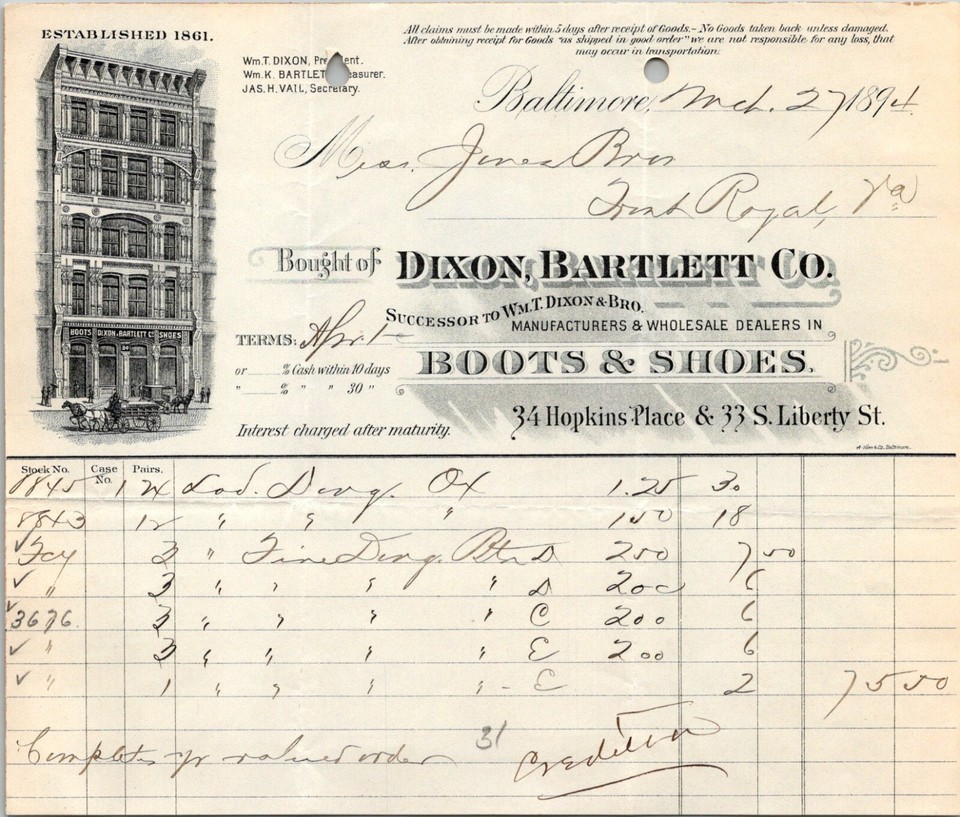 ESTABLISHED 1861.
All claims must be made within 5 days after receipt of Goods.- No Goods taken back unless damaged.
After obtaining receipt for Goods "as shipped in good order" we are not responsible for any loss, that
may occur in transportation.
Wm. T. DIXON, Pre ent.
Wm. K. BARTLETT easurer.
JAS. H. VAIL, Secretary.
Baltimore, Mch. 27 1894
Mess. Jones Bros
Front Royal, Va
Bought of DIXON, BARTLETT CO.
SUCCESSOR TO WM. T. DIXON & BRO.
MANUFACTURERS & WHOLESALE DEALERS IN
BOOTS & SHOES.
34 Hopkins Place & 33 S. Liberty St.
TERMS: Apr 1
or % Cash within 10 days
" % " " 30 "
Interest charged after maturity.
BOOTS DIXON-BARTLETT Co SHOES
Stock No. Case No. Pairs,
8845 24 Lad. Dong. Ox 1.25 30
8843 12 " " " 150 18
Fcy 3 " Fine Dong. Btn D 250 7 50
" 3 " " " " D 200 6
3676 3 " " " " C 200 6
" 3 " " " " E 200 6
" 1 " " " " - E 2 75 50
Completes yr valued order
31